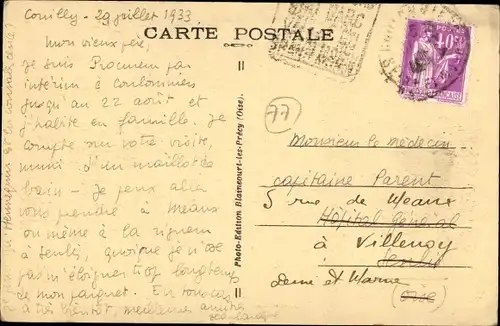 Couilly - 29 juillet 1933
Mon vieux père,
je suis Procureur par
intérim à Coulommiers
jusqu'au 22 août et
j'habite en famille. Je
compte sur votre visite,
muni d'un maillot de
bain - Je peux aller
vous prendre à Meaux
ou même à la rigueur
à Senlis, quoique je n'ose
pas m'éloigner trop longtemps
de mon parquet. En tous cas
à très bientôt, meilleures amitiés
CARTE POSTALE
Photo-Edition Blaincourt-les-Précy (Oise).
77
POSTES
40c
Monsieur le médecin
capitaine Parent
5 rue de Meaux
Hôpital Général
à Villenoy
Senlis
Seine et Marne
(Oise)